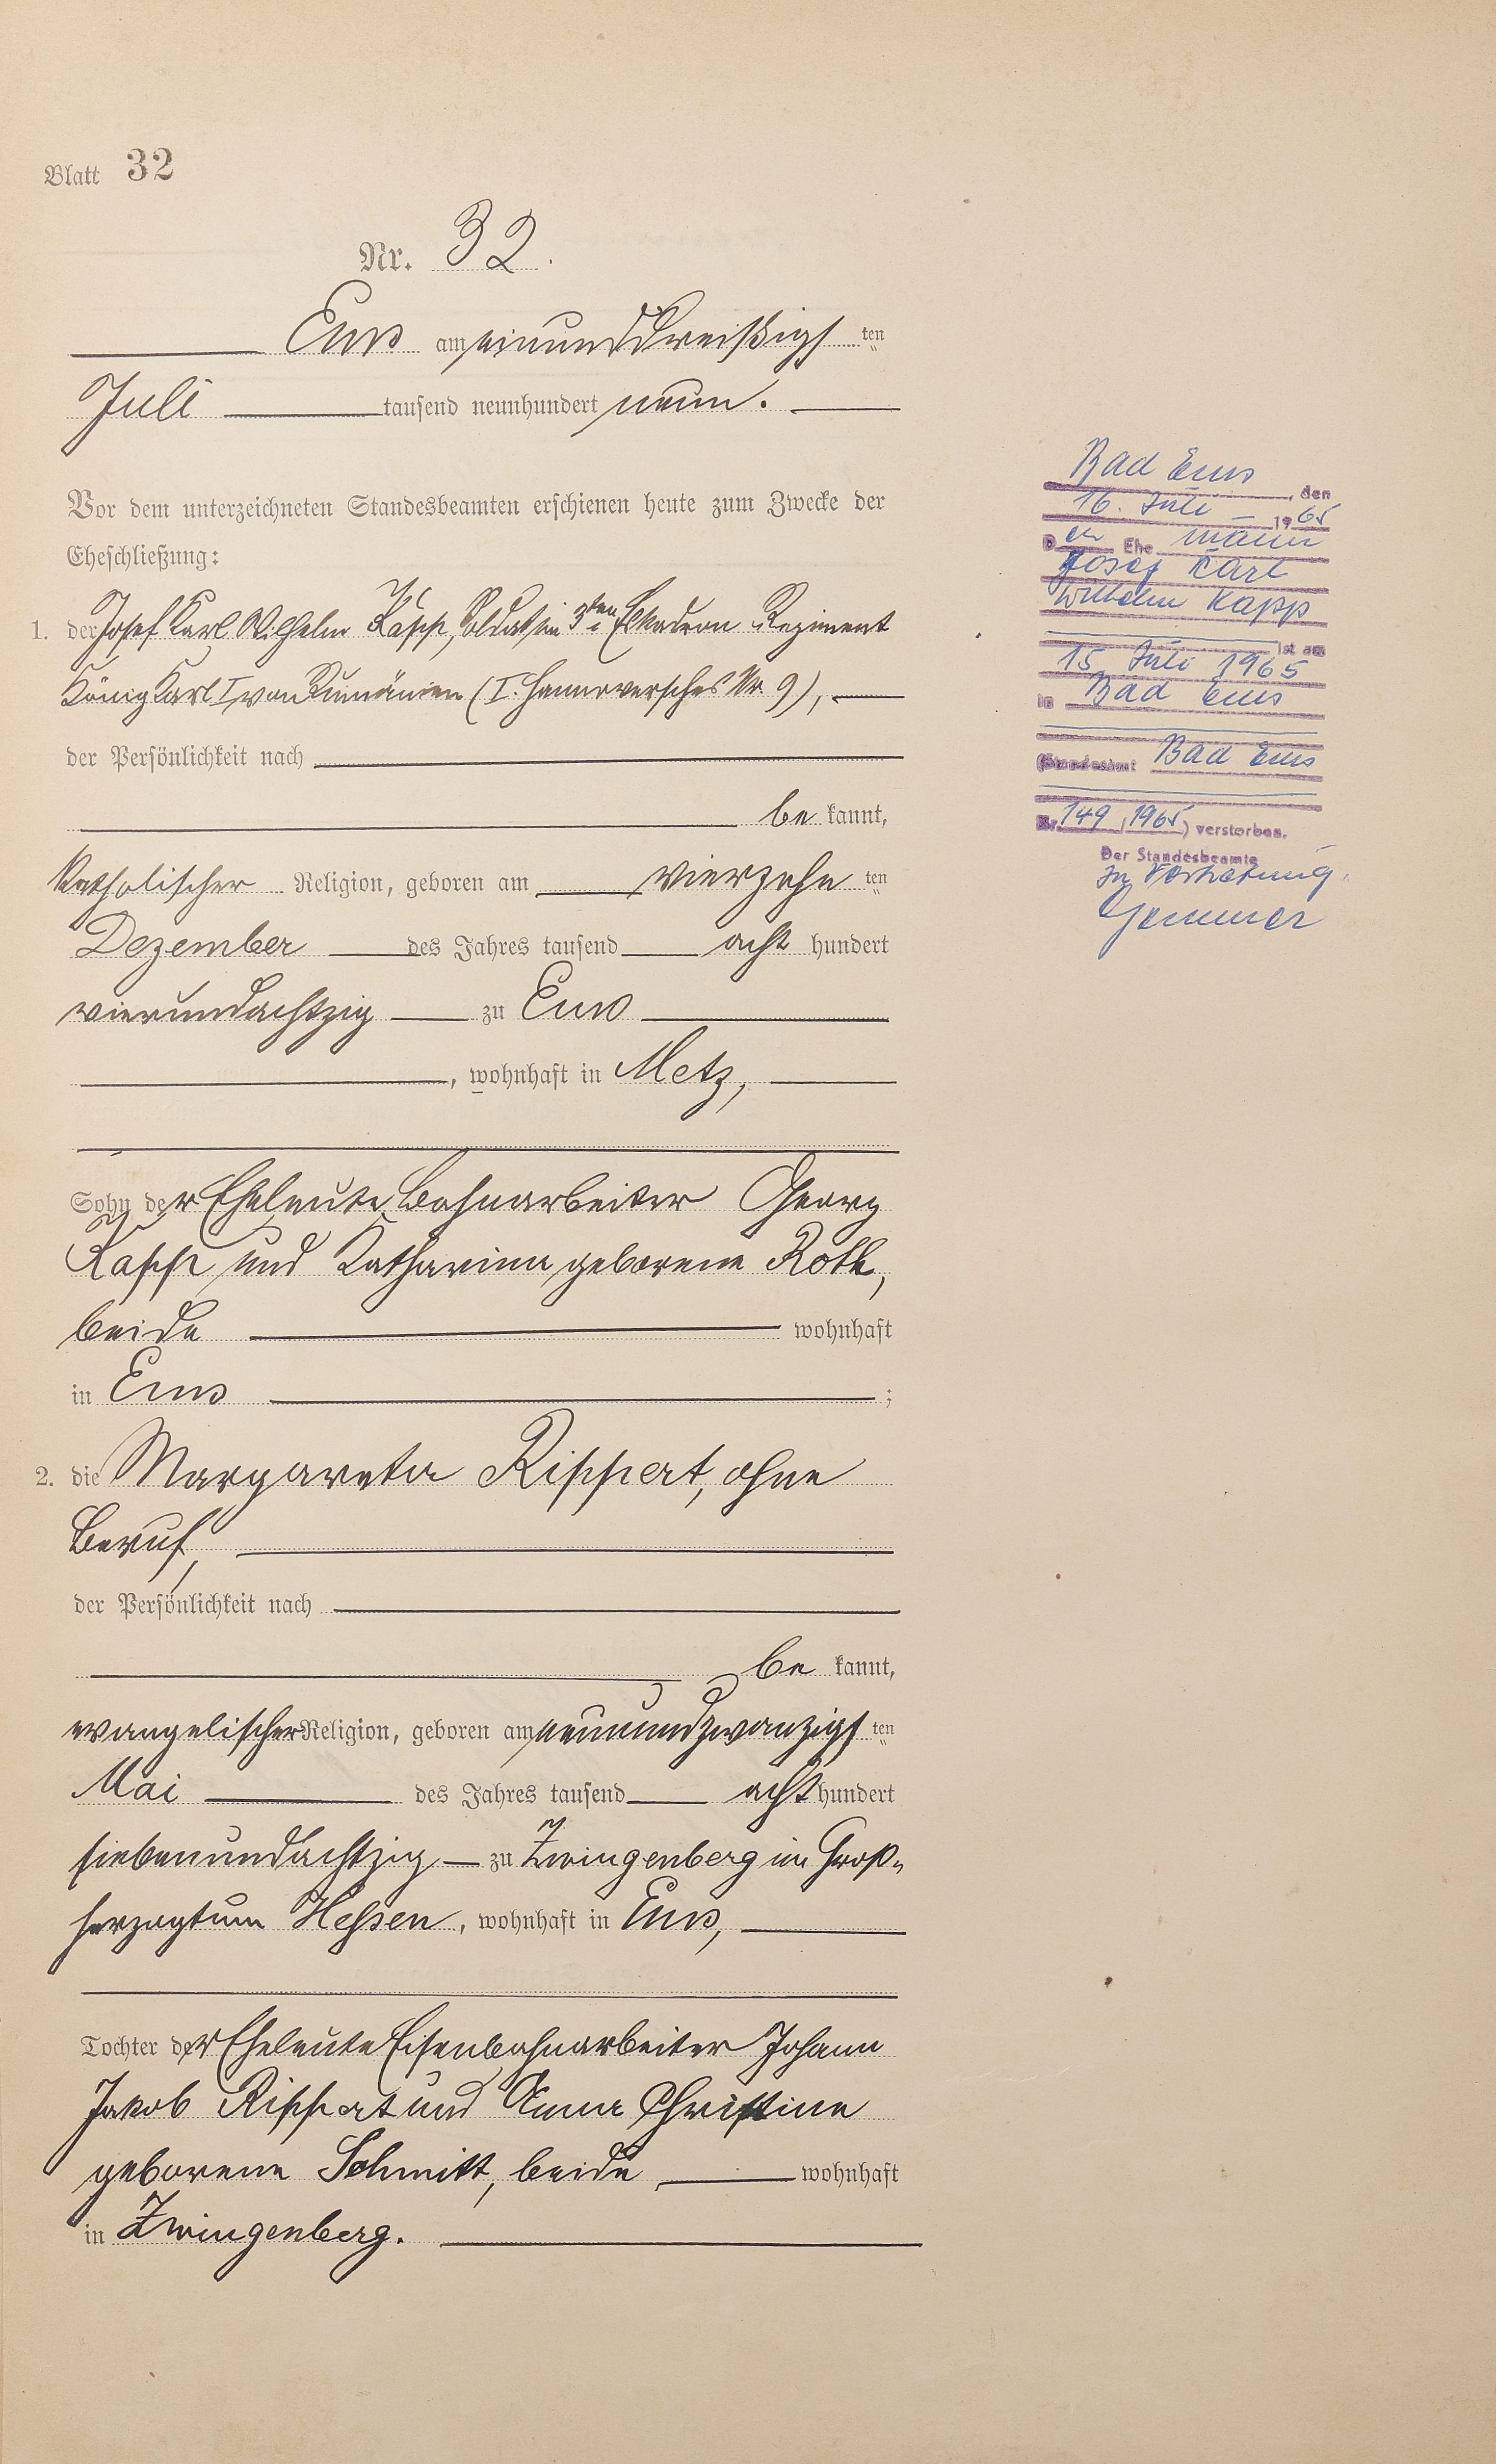 Blatt 32
Nr. 32.
Ems am einunddreißigs ten
Juli tausend neunhundert neun.
Vor dem unterzeichneten Standesbeamten erschienen heute zum Zwecke der
Eheschließung:
1. der Josef Karl Wilhelm Kapp, Soldat in 3ten Eskadron Regiment
König Karl I von Rumänien (I. Hannoversches Nr. 9),
der Persönlichkeit nach
be kannt,
katholischer Religion, geboren am vierzehn ten
Dezember des Jahres tausend acht hundert
vierundachtzig zu Ems
, wohnhaft in Metz,
Sohn der Eheleute Bahnarbeiter Georg
Kapp und Katharina geborene Roth,
beide wohnhaft
in Ems ;
2. die Margareta Rippert, ohne
Beruf,
der Persönlichkeit nach
be kannt,
evangelischer Religion, geboren am neunundzwanzigs ten
Mai des Jahres tausend acht hundert
siebenundachtzig zu Zwingenberg im Groß-
herzogtum Hessen, wohnhaft in Ems,
Tochter der Eheleute Eisenbahnarbeiter Johann
Jakob Rippert und Anna Christine
geborene Schmitt, beide wohnhaft
in Zwingenberg.
Bad Ems, den
16. Juli 1965
Der Ehemann
Josef Karl
Wilhelm Kapp
ist am
15. Juli 1965
in Bad Ems
(Standesamt Bad Ems
Nr. 149/1965) verstorben.
Der Standesbeamte
In Vertretung.